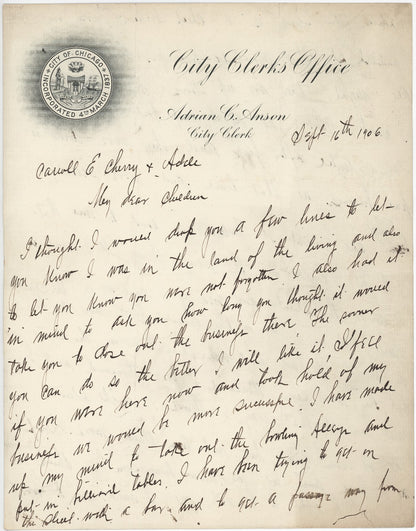 CITY OF CHICAGO
INCORPORATED 4TH MARCH 1837
City Clerks Office
Adrian C. Anson
City Clerk
Sept 16th 1906
Carroll E Cherry & Adele
My dear Children
I thought I would drop you a few lines to let
you know I was in the land of the living and also
to let you know you were not forgotten I also had it
in mind to ask you how long you thought it would
take you to close out the business there, The sooner
you can do so the better I will like it, I feel
if you were here now and took hold of my
business we would be more successful. I have made
up my mind to take out the bowling Alleys and
put in billiard tables, I have been trying to get on
the street with a bar and to get a passage way from